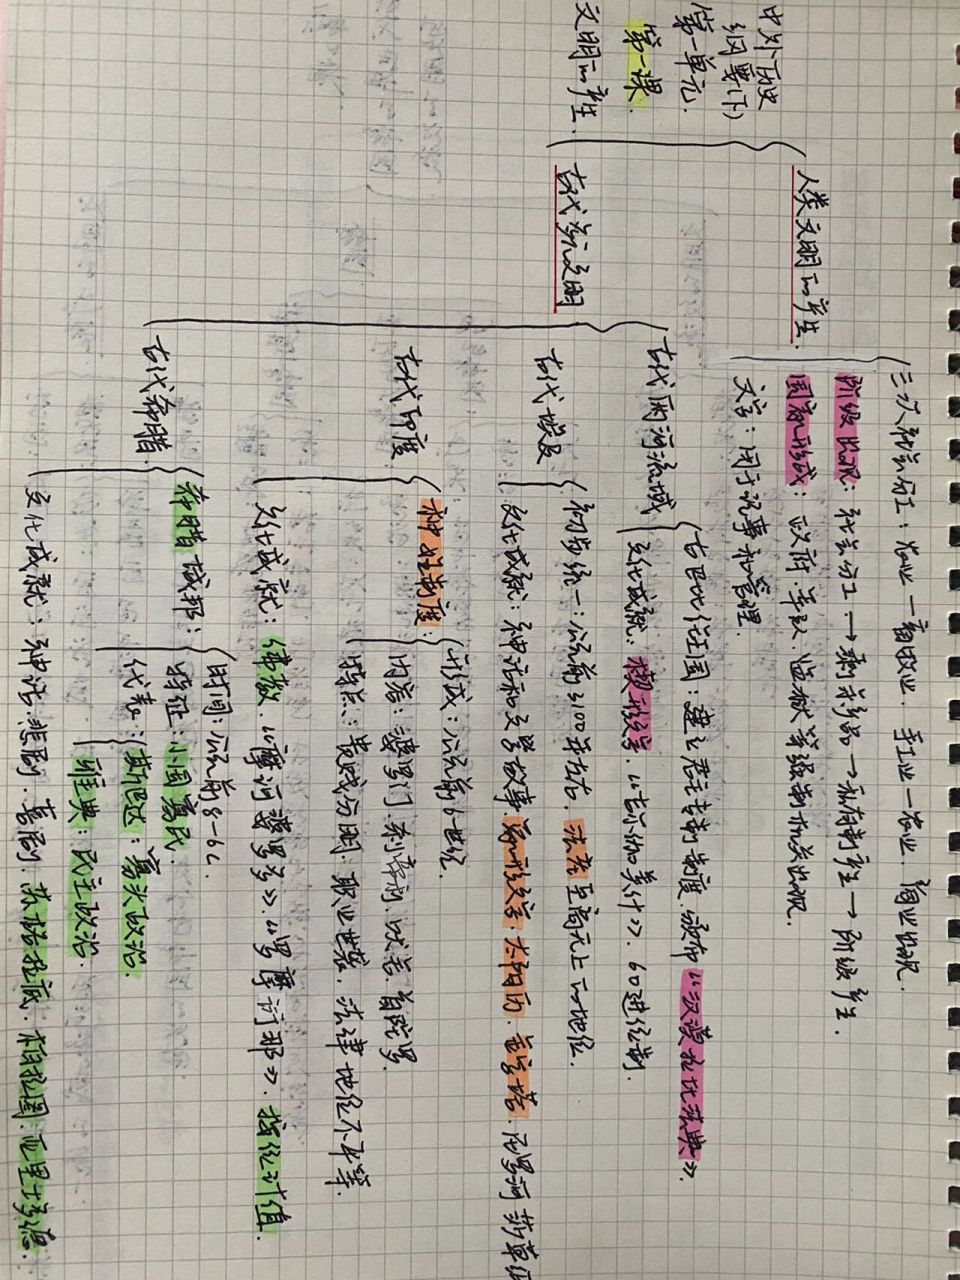 中外历史
纲要(下)
第一单元
第一课
文明的产生.
人类文明的产生.
三次社会分工：农业—畜牧业. 手工业—农业 商业出现.
阶级出现：社会分工→剩余产品→私有制产生→阶级产生.
国家形成：政府.军队.监狱等强制机关出现.
文字：用于记事和管理.
古代多元文明
古代两河流域
古巴比伦王国：建立君主专制制度 颁布《汉谟拉比法典》.
文化成就：楔形文字.《吉尔伽美什》. 60进位制.
古代埃及
初步统一：公元前3100年左右. 法老至高无上的地位.
文化成就：神话和文学故事.象形文字.太阳历.金字塔.
古代印度
种姓制度：
形成：公元前6世纪.
内容：婆罗门.刹帝利.吠舍.首陀罗.
特点：贵贱分明.职业世袭. 法律地位不平等.
文化成就：佛教.《摩诃婆罗多》.《罗摩衍那》. 按位计值.
古代希腊.
希腊城邦：
时间：公元前8-6C
特征：小国寡民.
代表：斯巴达：寡头政治.
雅典：民主政治.
文化成就：神话.悲剧.喜剧.苏格拉底.柏拉图.亚里士多德.